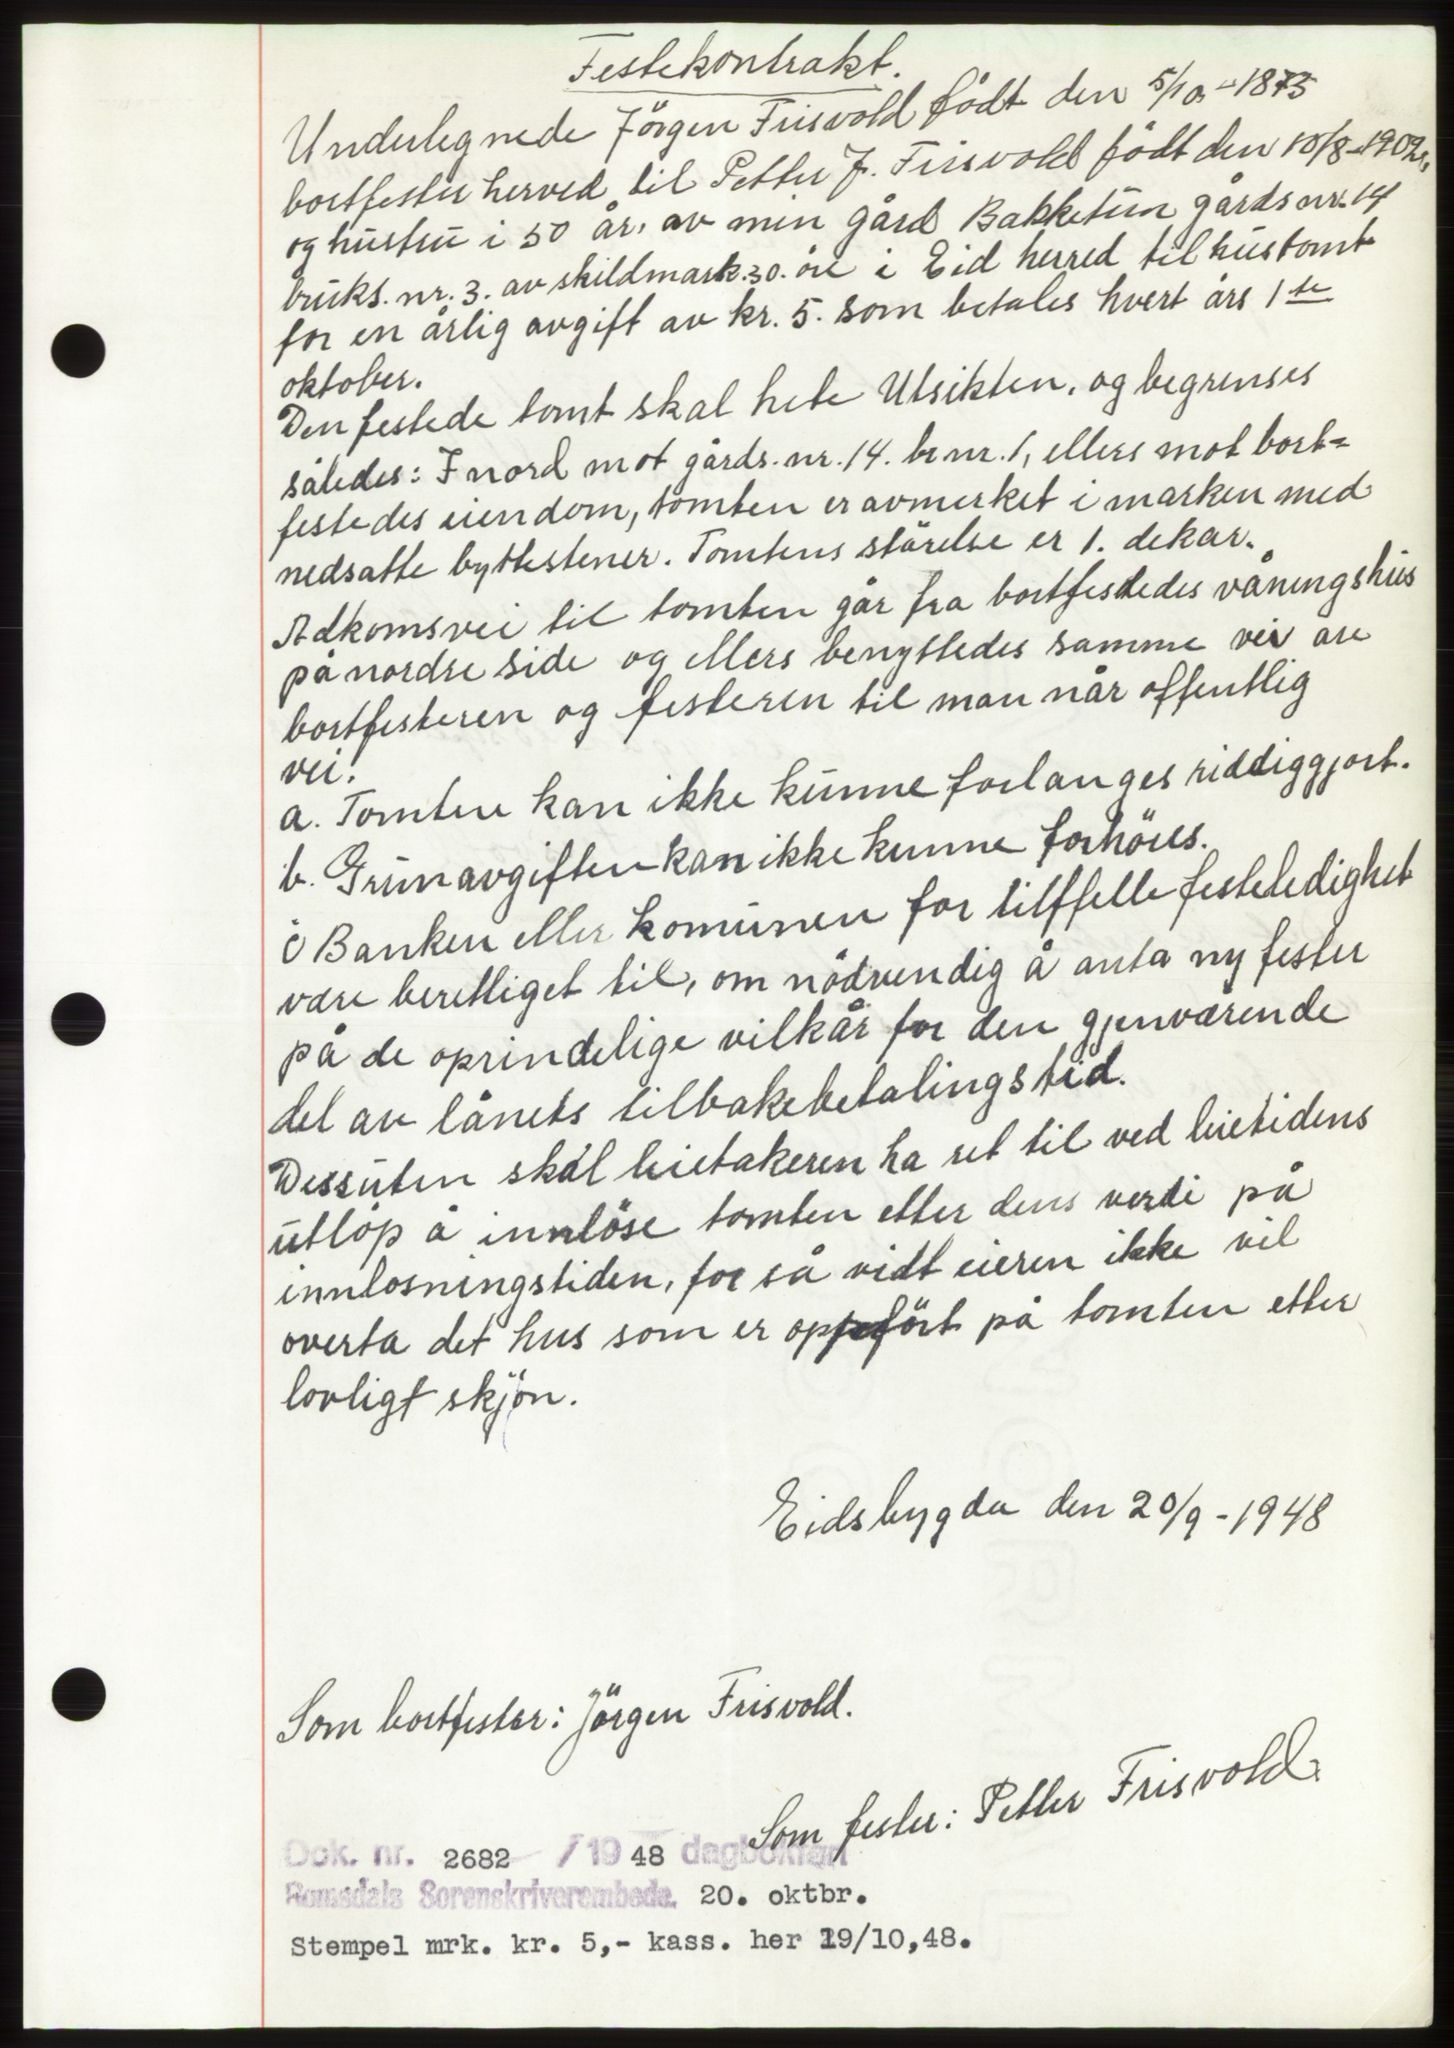 Festekontrakt.
Undertegnede Jörgen Frisvold födt den 5/10 - 1873
bortfester herved til Petter J. Frisvold födt den 10/8 - 1902.
og hustru i 50 år, av min gård Bakketun gårdsnr. 14
bruks. nr. 3. av skildmark. 30. öre i Eid herred til hustomt
for en årlig avgift av kr. 5. som betales hvert års 1ste
oktober.
Den festede tomt skal hete Utsikten, og begrenses
således: I nord mot gårds. nr. 14. br nr. 1, ellers mot bort=
festedes eiendom, tomten er avmerket i marken med
nedsatte byttestener. Tomtens störelse er 1. dekar.
Adkomsvei til tomten går fra bortfestedes våningshus
på nordre side og ellers benyttedes samme vei av
bortfesteren og festeren til man når offentlig
vei.
a. Tomten kan ikke kunne forlanges riddiggjort.
b. Grunavgiften kan ikke kunne forhöies.
c Banken eller komunen for tilffelle festeledighet
være berettiget til, om nödvendig å anta ny fester
på de oprindelige vilkår for den gjenværende
del av lånets tilbakebetalingstid.
Dessuten skal leietakeren ha ret til ved leietidens
utlöp å innlöse tomten etter dens verdi på
innlosningstiden, for så vidt eieren ikke vil
overta det hus som er oppfört på tomten etter
lovligt skjön.
Eidsbygda den 20/9 - 1948
Som bortfester: Jörgen Frisvold.
Som fester: Petter Frisvold.
Dok. nr. 2682 / 19 48 dagbokført
Romsdals Sorenskriverembede. 20. oktbr.
Stempel mrk. kr. 5,- kass. her 19/10,48.